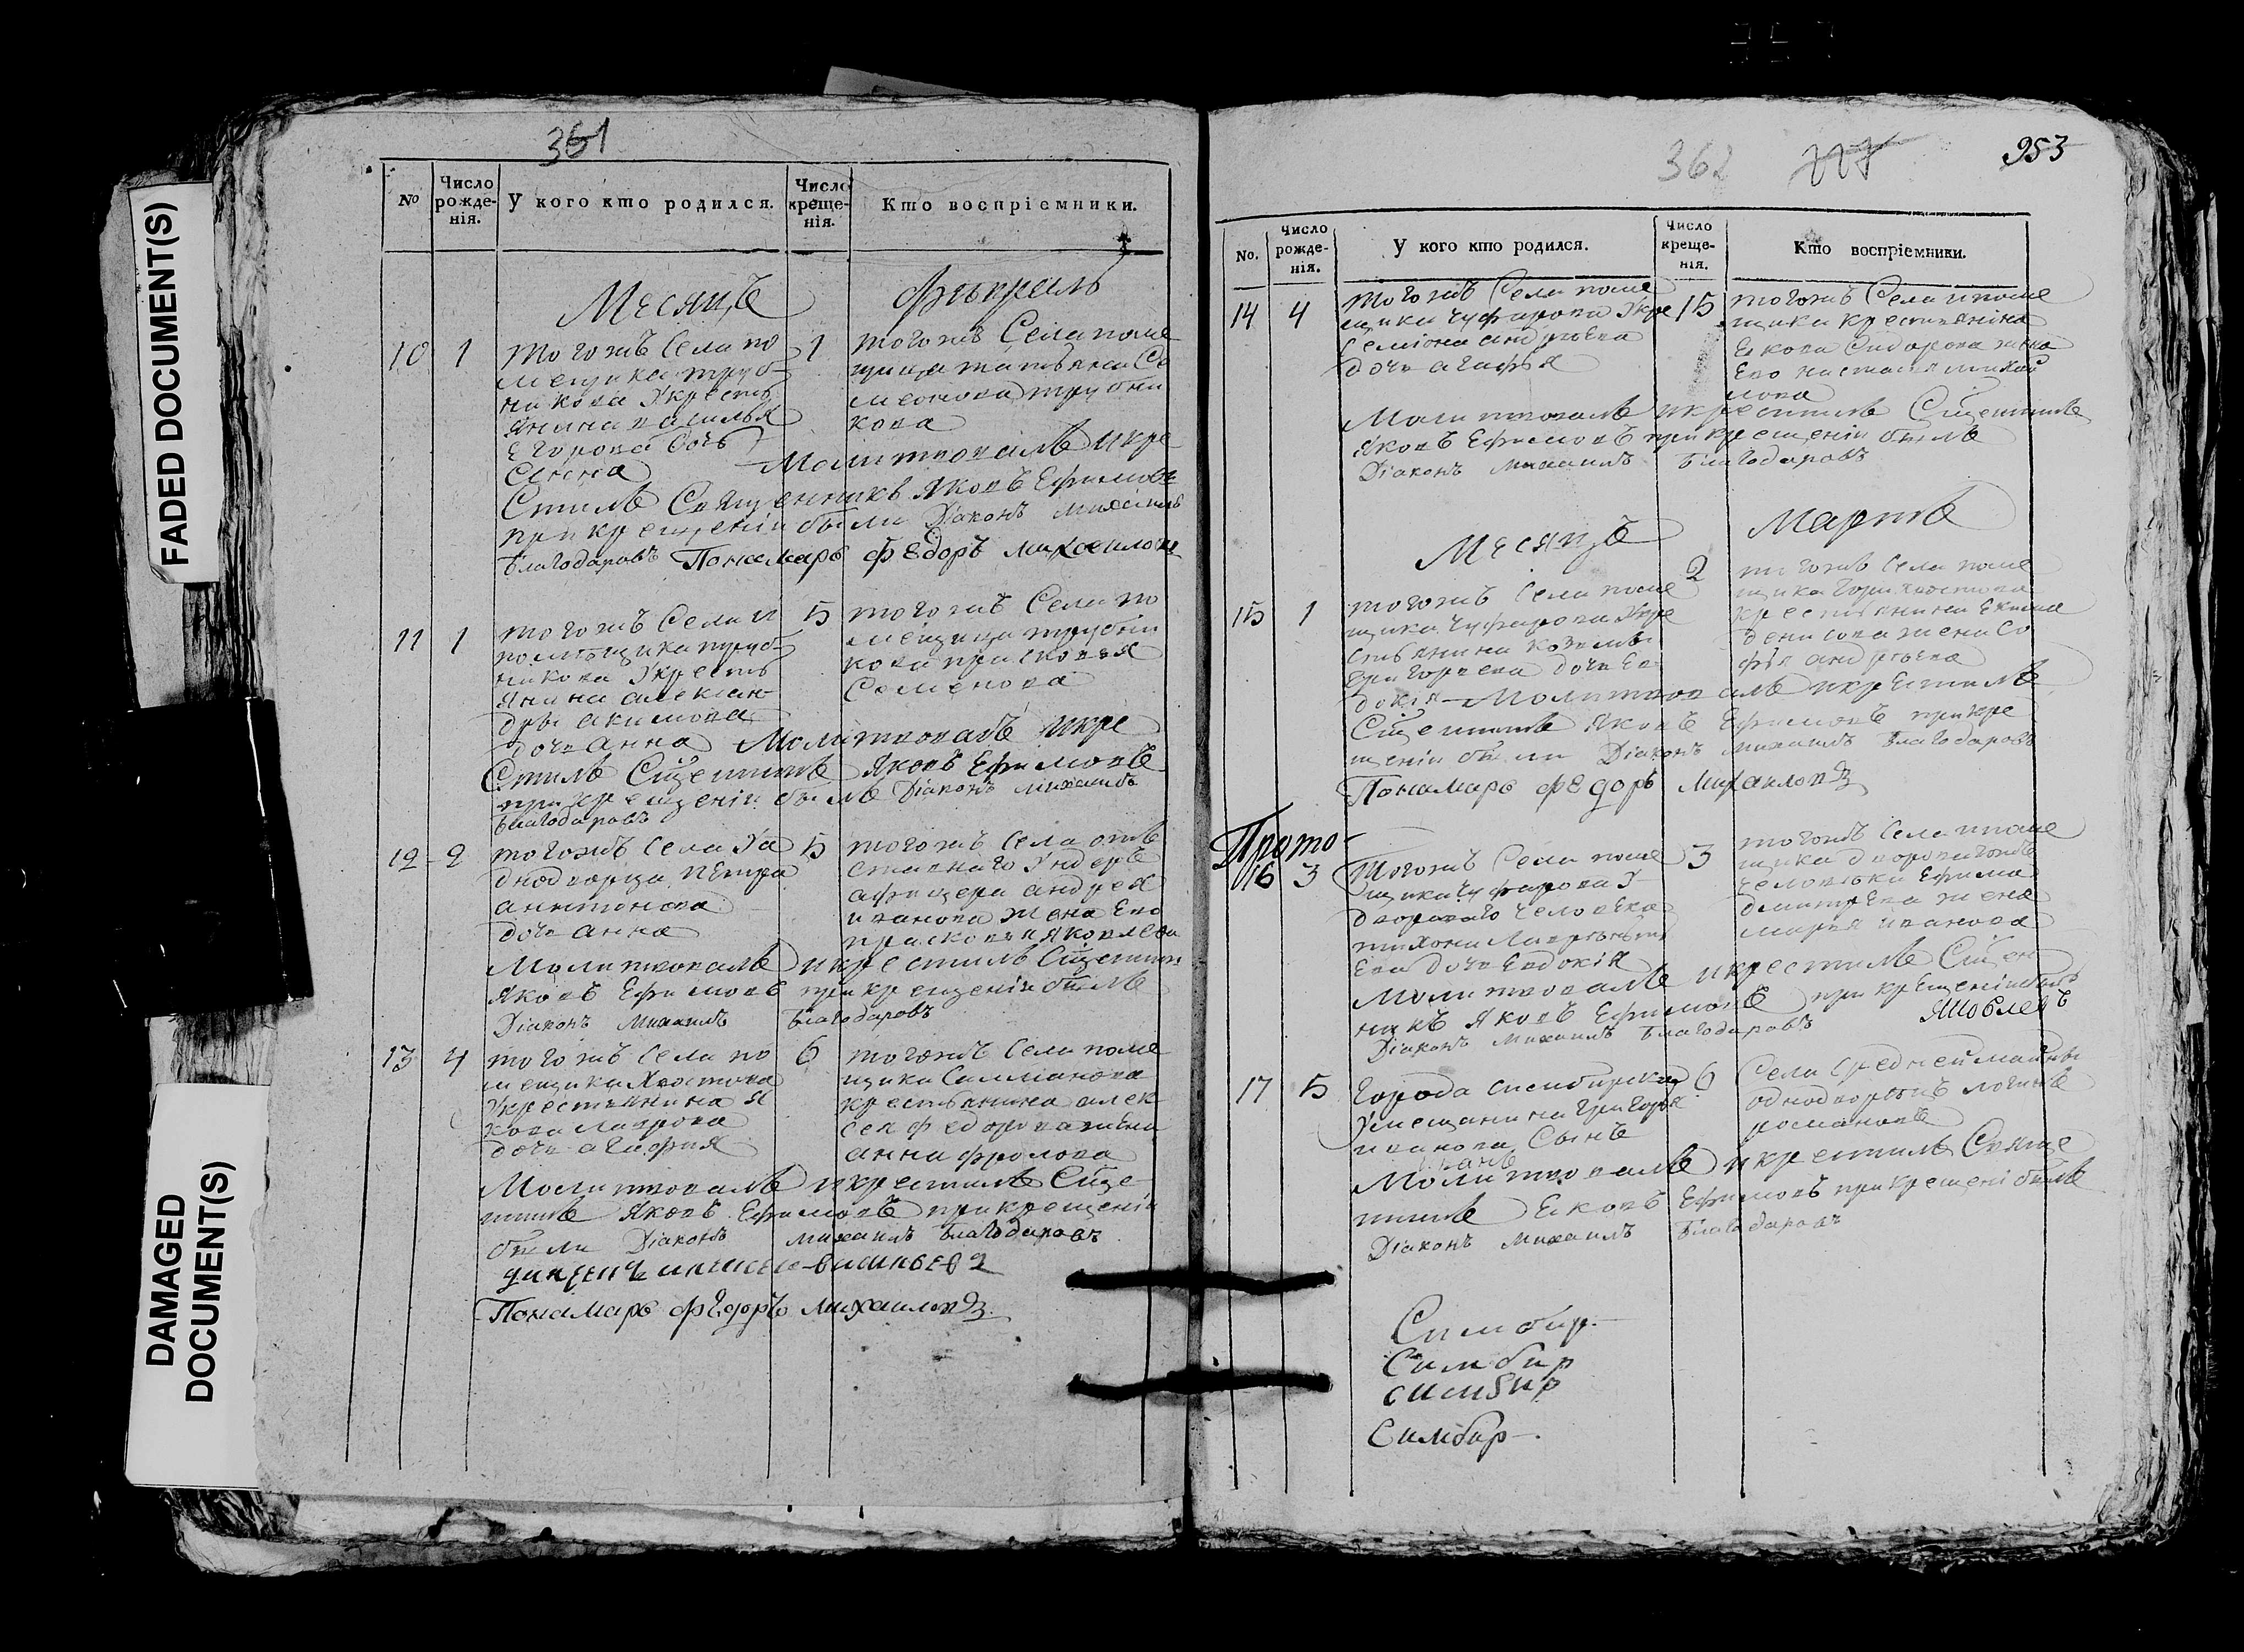 FADED DOCUMENT(S)
DAMAGED
DOCUMENT(S)
361
№
Число рожде-нія.
У кого кто родился.
Число креще-нія.
Кто воспріемники.
Месяцъ Февраль
10 1
тогожъ Села по
мещика труб-
никова Укресть
янина василья
Егорова дочь
1
тогожъ Села поме
щица татьяна Се
меонова трубни
кова
Молитвовалъ икре
Стилъ Священникъ Яковъ Ефимовъ
при крещеніи были Діаконъ михаилъ
благодаровъ Понамарь федоръ михаиловъ
11 1
тогожъ Села и
помѣщика труб-
никова Укресть
янина алексан-
дры акимова
дочь анна
5
тогожъ Села по
мещица трубни
кова прасковья
Семенова
Молитвовалъ икре
Стилъ Яковъ Ефимовъ
при крещеніи былъ Діаконъ михаилъ
благодаровъ
12 2
тогожъ Села Уа
днодворца петра
антонова
дочь анна
5
тогожъ Села отъ
ставнаго Ундеръ
афицера андрея
иванова жена Ево
прасковья яковлева
Молитвовалъ икрестилъ
Яковъ Ефимовъ при крещеніи былъ
Діаконъ Михаилъ благодаровъ
13 4
тогожъ Села по
мещика Хвостова
Укрестьянина Я
кова лаврова
дочь агафия
6
тогожъ Села поме
щика Салманова
крестьянина алек
сея федорова жена
анна фролова
Молитвовалъ икрестилъ
Яковъ Ефимовъ при крещеніи
были Діаконъ михаилъ благодаровъ
Понамарь федоръ михаиловъ
362
953
No.
Число рожде-нія.
У кого кто родился.
Число креще-нія.
Кто воспріемники.
14 4
тогожъ Села поме
щика Чуфарова Укре
Семіона андрѣева
дочь агафья
15
тогожъ Села ипоме
щика крестьянина
Екова Сидорова жена
Ево настасья михай
лова
Молитвовалъ икрестилъ
Яковъ Ефимовъ при крещеніи былъ
Діаконъ михаилъ благодаровъ
Месяцъ Мартъ
15 1
тогожъ Села поме
щика Чуфарова Укре
стьянина козьмы
григорьева дочь Ев
докія
2
тогожъ Села поме
крестьянина Екима
денисова жена Со
фья андрѣева
Молитвовалъ икрестилъ
Яковъ Ефимовъ прикре
щеніи были Діаконъ михаилъ благодаровъ
Понамарь федоръ Михаиловъ
Прото-
16 3
тогожъ Села поме
щика Чуфарова У
двороваго человека
Ева дочь Евдокія
3
тогожъ Села ипоме
щика двороваго
человѣка Ефима
дмитрева жена
марья иванова
Молитвовалъ икрестилъ Сщен
никъ Яковъ Ефимовъ при крещеніи былъ
Діаконъ михаилъ благодаровъ
Яковлевъ
17 5
города Симбирска
Умещанина григорья
иванова Сынъ
иванъ
6
Села Средней майны
однодворецъ логинъ
романовъ
Молитвовалъ икрестилъ Свяще
Ековъ Ефимовъ при крещені былъ
Діаконъ михаилъ благодаровъ
Симбир-
Симбир
симбир
Симбир-.